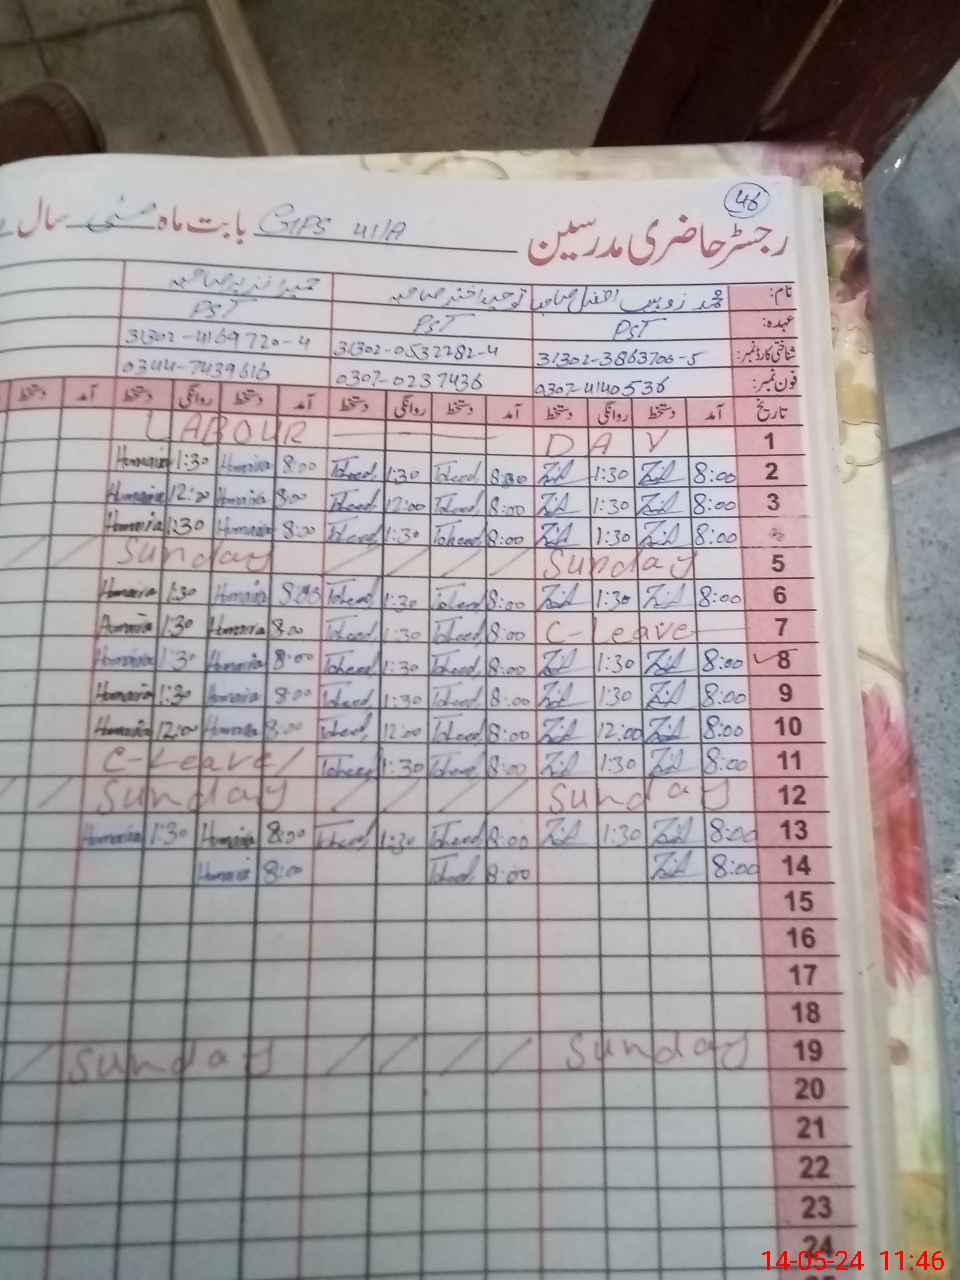 46
رجسٹر حاضری مدرسین GGPS 41/A بابت ماہ مئی سال
نام: محمد زوہیب افضل صاحب توحید اختر صاحبہ حمیرا نذیر صاحبہ
عہدہ: PST PST PST
شناختی کارڈ نمبر: 31302-3863706-5 31302-0532282-4 31302-4169720-4
فون نمبر: 0307-4140536 0307-0237436 0344-7439616
تاریخ آمد دستخط روانگی دستخط آمد دستخط روانگی دستخط آمد دستخط روانگی دستخط آمد دستخط
1 LABOUR DAY
2 8:00 1:30 8:00 Toheed 1:30 Toheed 8:00 Homaira 1:30 Homaira
3 8:00 1:30 8:00 Toheed 12:00 Toheed 8:00 Homaira 12:00 Homaira
8:00 1:30 8:00 Toheed 1:30 Toheed 8:00 Homaira 1:30 Homaira
5 Sunday Sunday
6 8:00 1:30 8:00 Toheed 1:30 Toheed 8:00 Homaira 1:30 Homaira
7 C-Leave 8:00 Toheed 1:30 Toheed 8:00 Homaira 1:30 Homaira
8 8:00 1:30 8:00 Toheed 1:30 Toheed 8:00 Homaira 1:30 Homaira
9 8:00 1:30 8:00 Toheed 1:30 Toheed 8:00 Homaira 1:30 Homaira
10 8:00 12:00 8:00 Toheed 12:00 Toheed 8:00 Homaira 12:00 Homaira
11 8:00 1:30 8:00 Toheed 1:30 Toheed C-Leave
12 Sunday Sunday
13 8:00 1:30 8:00 Toheed 1:30 Toheed 8:00 Homaira 1:30 Homaira
14 8:00 8:00 Toheed 8:00 Homaira
15
16
17
18
19 Sunday Sunday
20
21
22
23
24
14-05-24 11:46